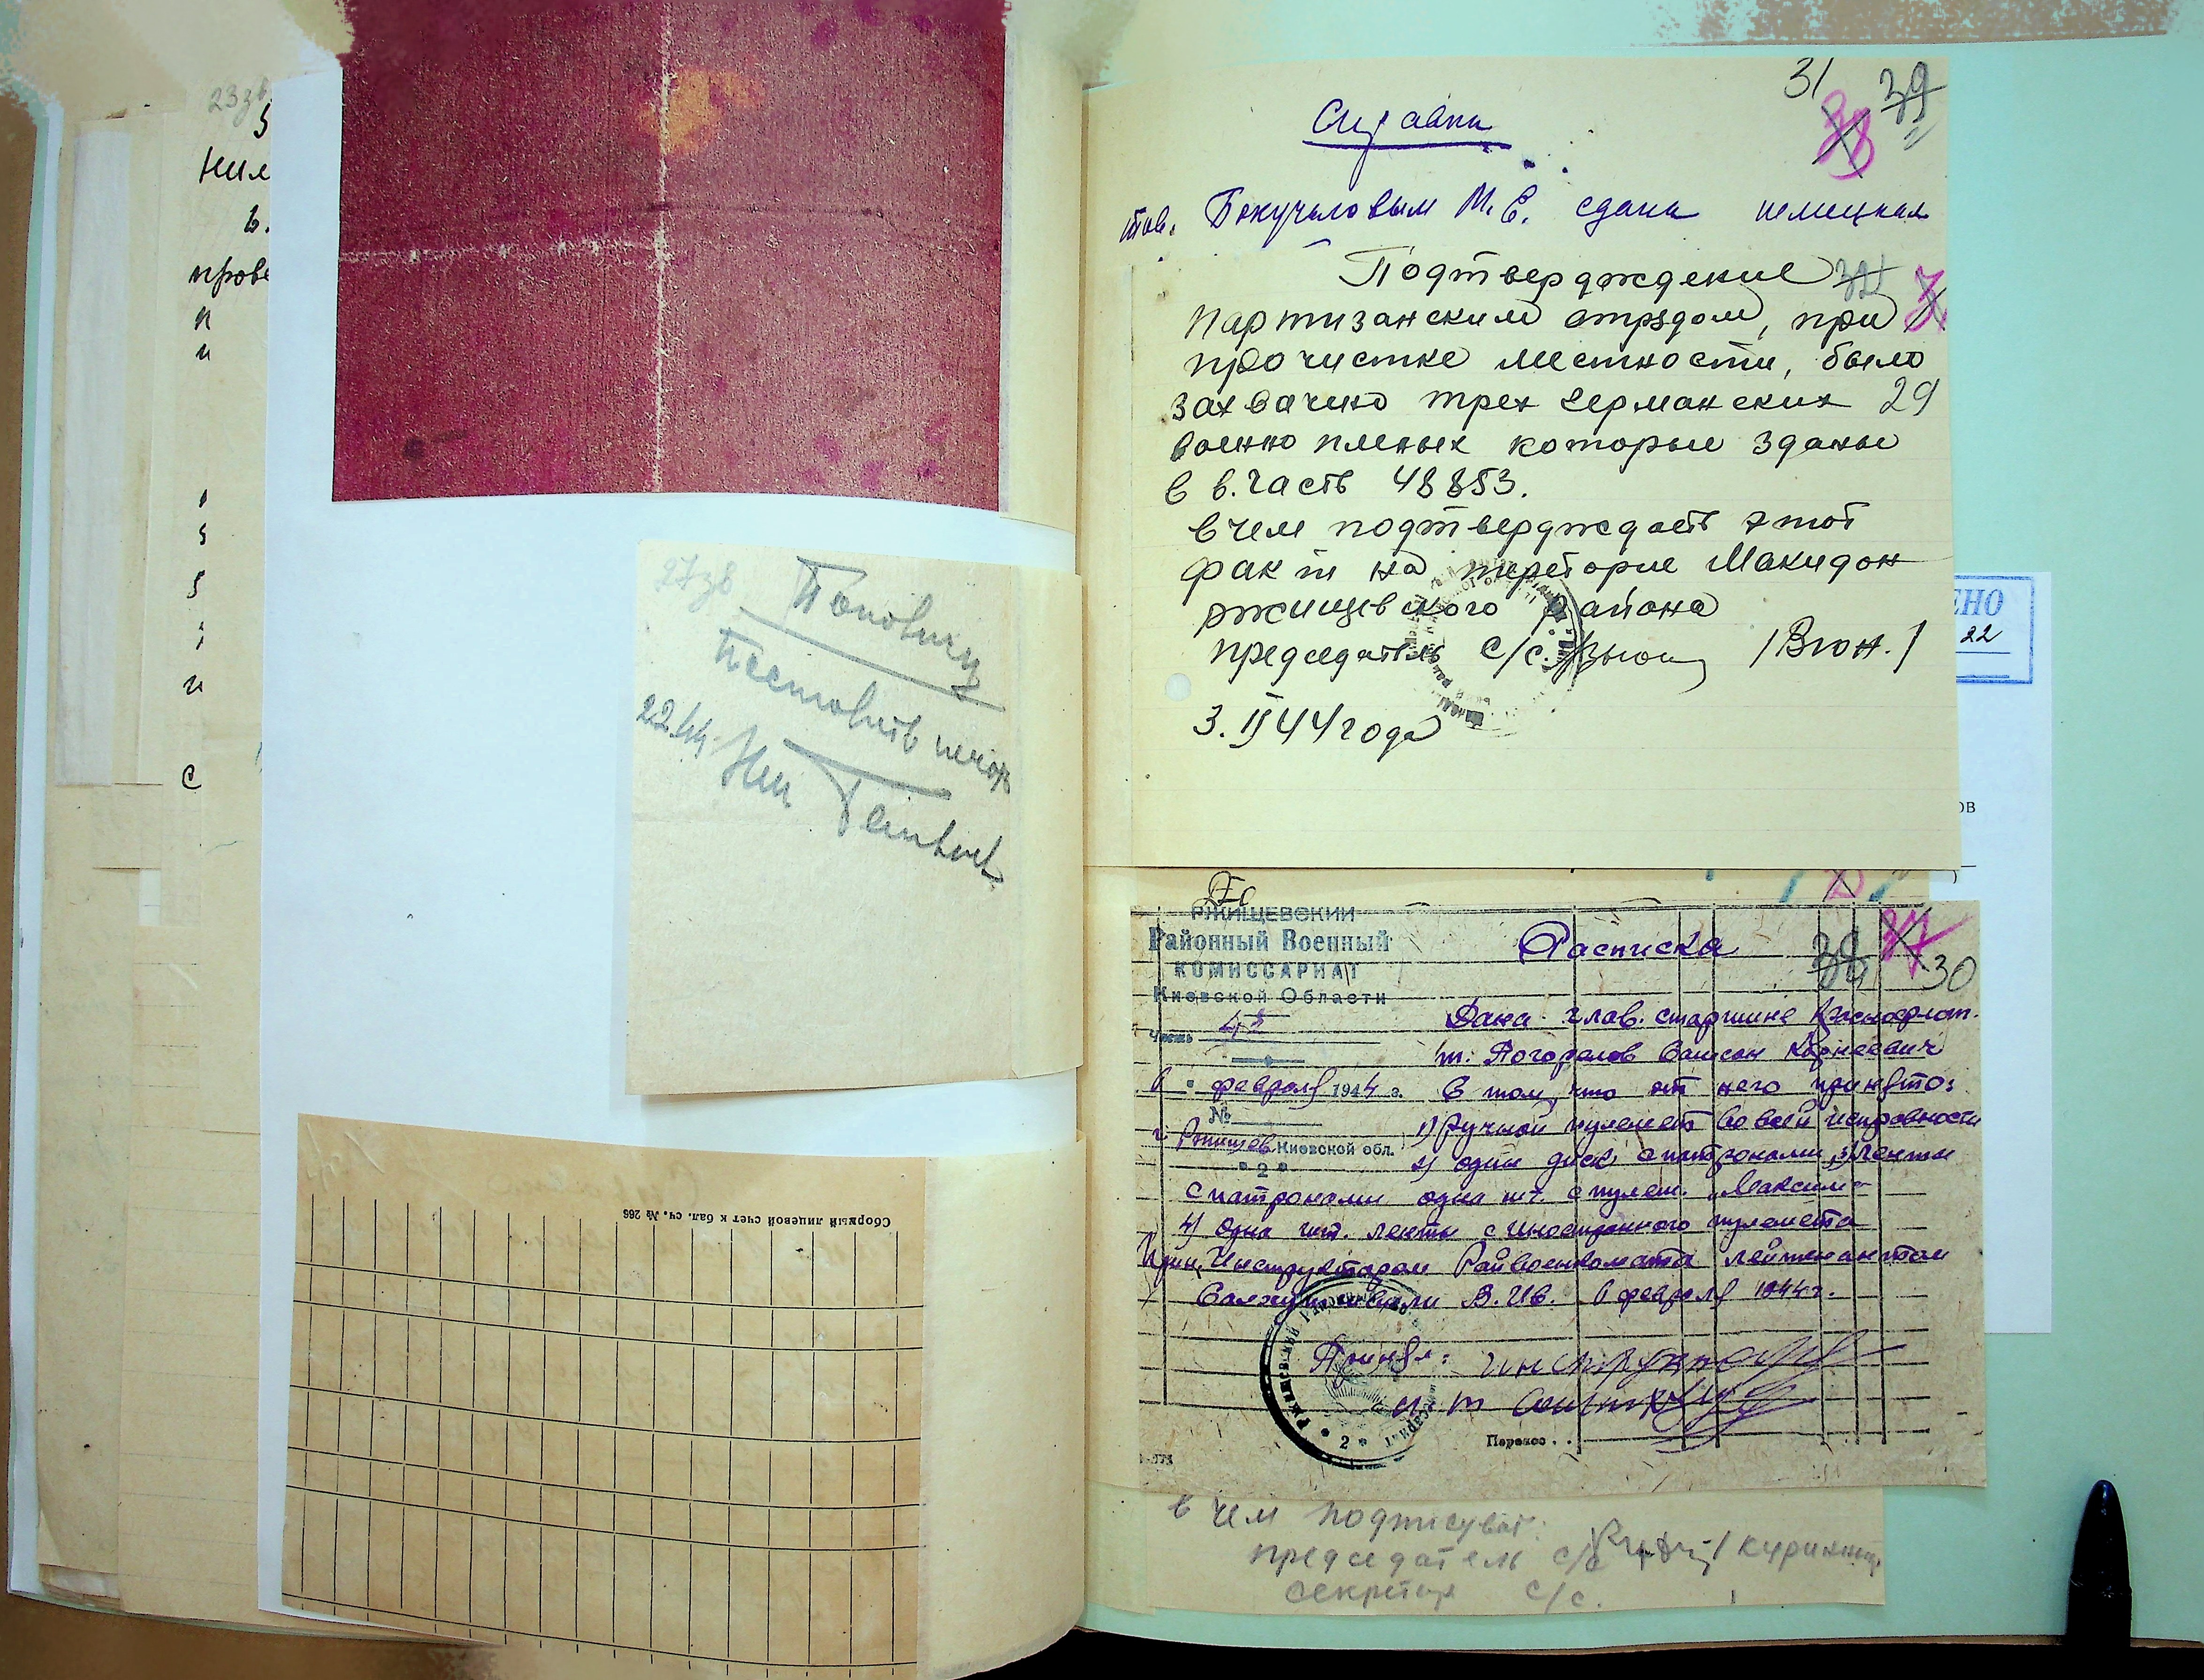 23зв
нил
в.
прове
п
и
с
27зв
Попович
22.
Сборный лицевой счет к бал. сч. № 266
31 39
Справка
тов. Бокучаловым М. Е. сдана немецкая
Подтверждение
партизанским отрядом, при
прочистке местности, было
захвачено трех германских 29
военно пленых которые зданы
в в. часть 48853.
в чем подтверждаеть этот
факт на тереторие Макидон
ржищевского района
председатель с/с. /Вюн./
3. II 44 года
ЕНО
22
ов
РЖИЩЕВСКИЙ
Районный Военный
КОМИССАРИАТ
Киевской Области
Часть
6 февраля 1944 г.
№
г. Ржищев Киевской обл.
* 2 *
Расписка
30
Дана глав. старшине Краснофлот.
т. Погорелов Самсон Корнеевич
в том, что от него принято:
1) Ручной пулемет во всей исправности
2) один диск с патронами, 3) Ленты
с патронами одна шт. с пулем. "Максим"
4) одна шт. ленты с иностранного пулемета
Прин. Инструктором Райвоенкомата лейтенантом
В. Ив. 6 февраля 1944 г.
Принял: инструктор
Перенос . .
в чем подписуют:
председатель с/с
секретар с/с.